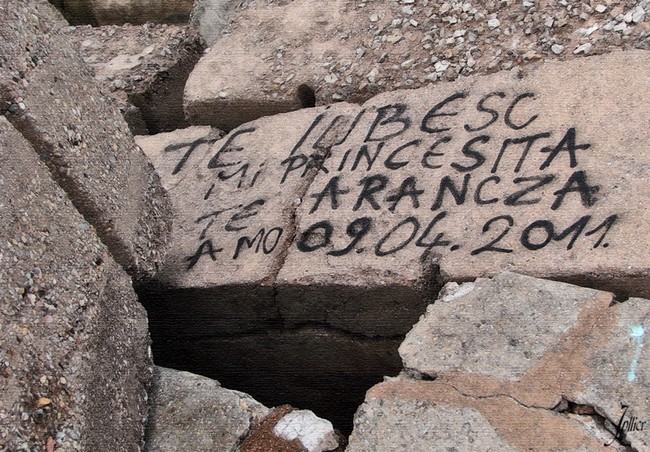 TE IUBESC
MI PRINCESITA
TE ARANCZA
AMO 09.04.2011.